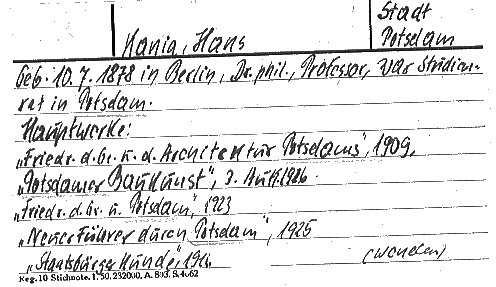 Stadt
Kania, Hans Potsdam
geb. 10.7.1878 in Berlin, Dr. phil., Professor, war Studien-
rat in Potsdam.
Hauptwerke:
„Friedr. d. Gr. u. d. Architektur Potsdams", 1909,
„Potsdamer Baukunst", 3. Aufl. 1926
„Friedr. d. Gr. u. Potsdam", 1923
„Neuer Führer durch Potsdam", 1925
„Staatsbürgerkunde",
Keg. 10 Stichnote. 1. 50. 232000, A. 803. S. 4.62